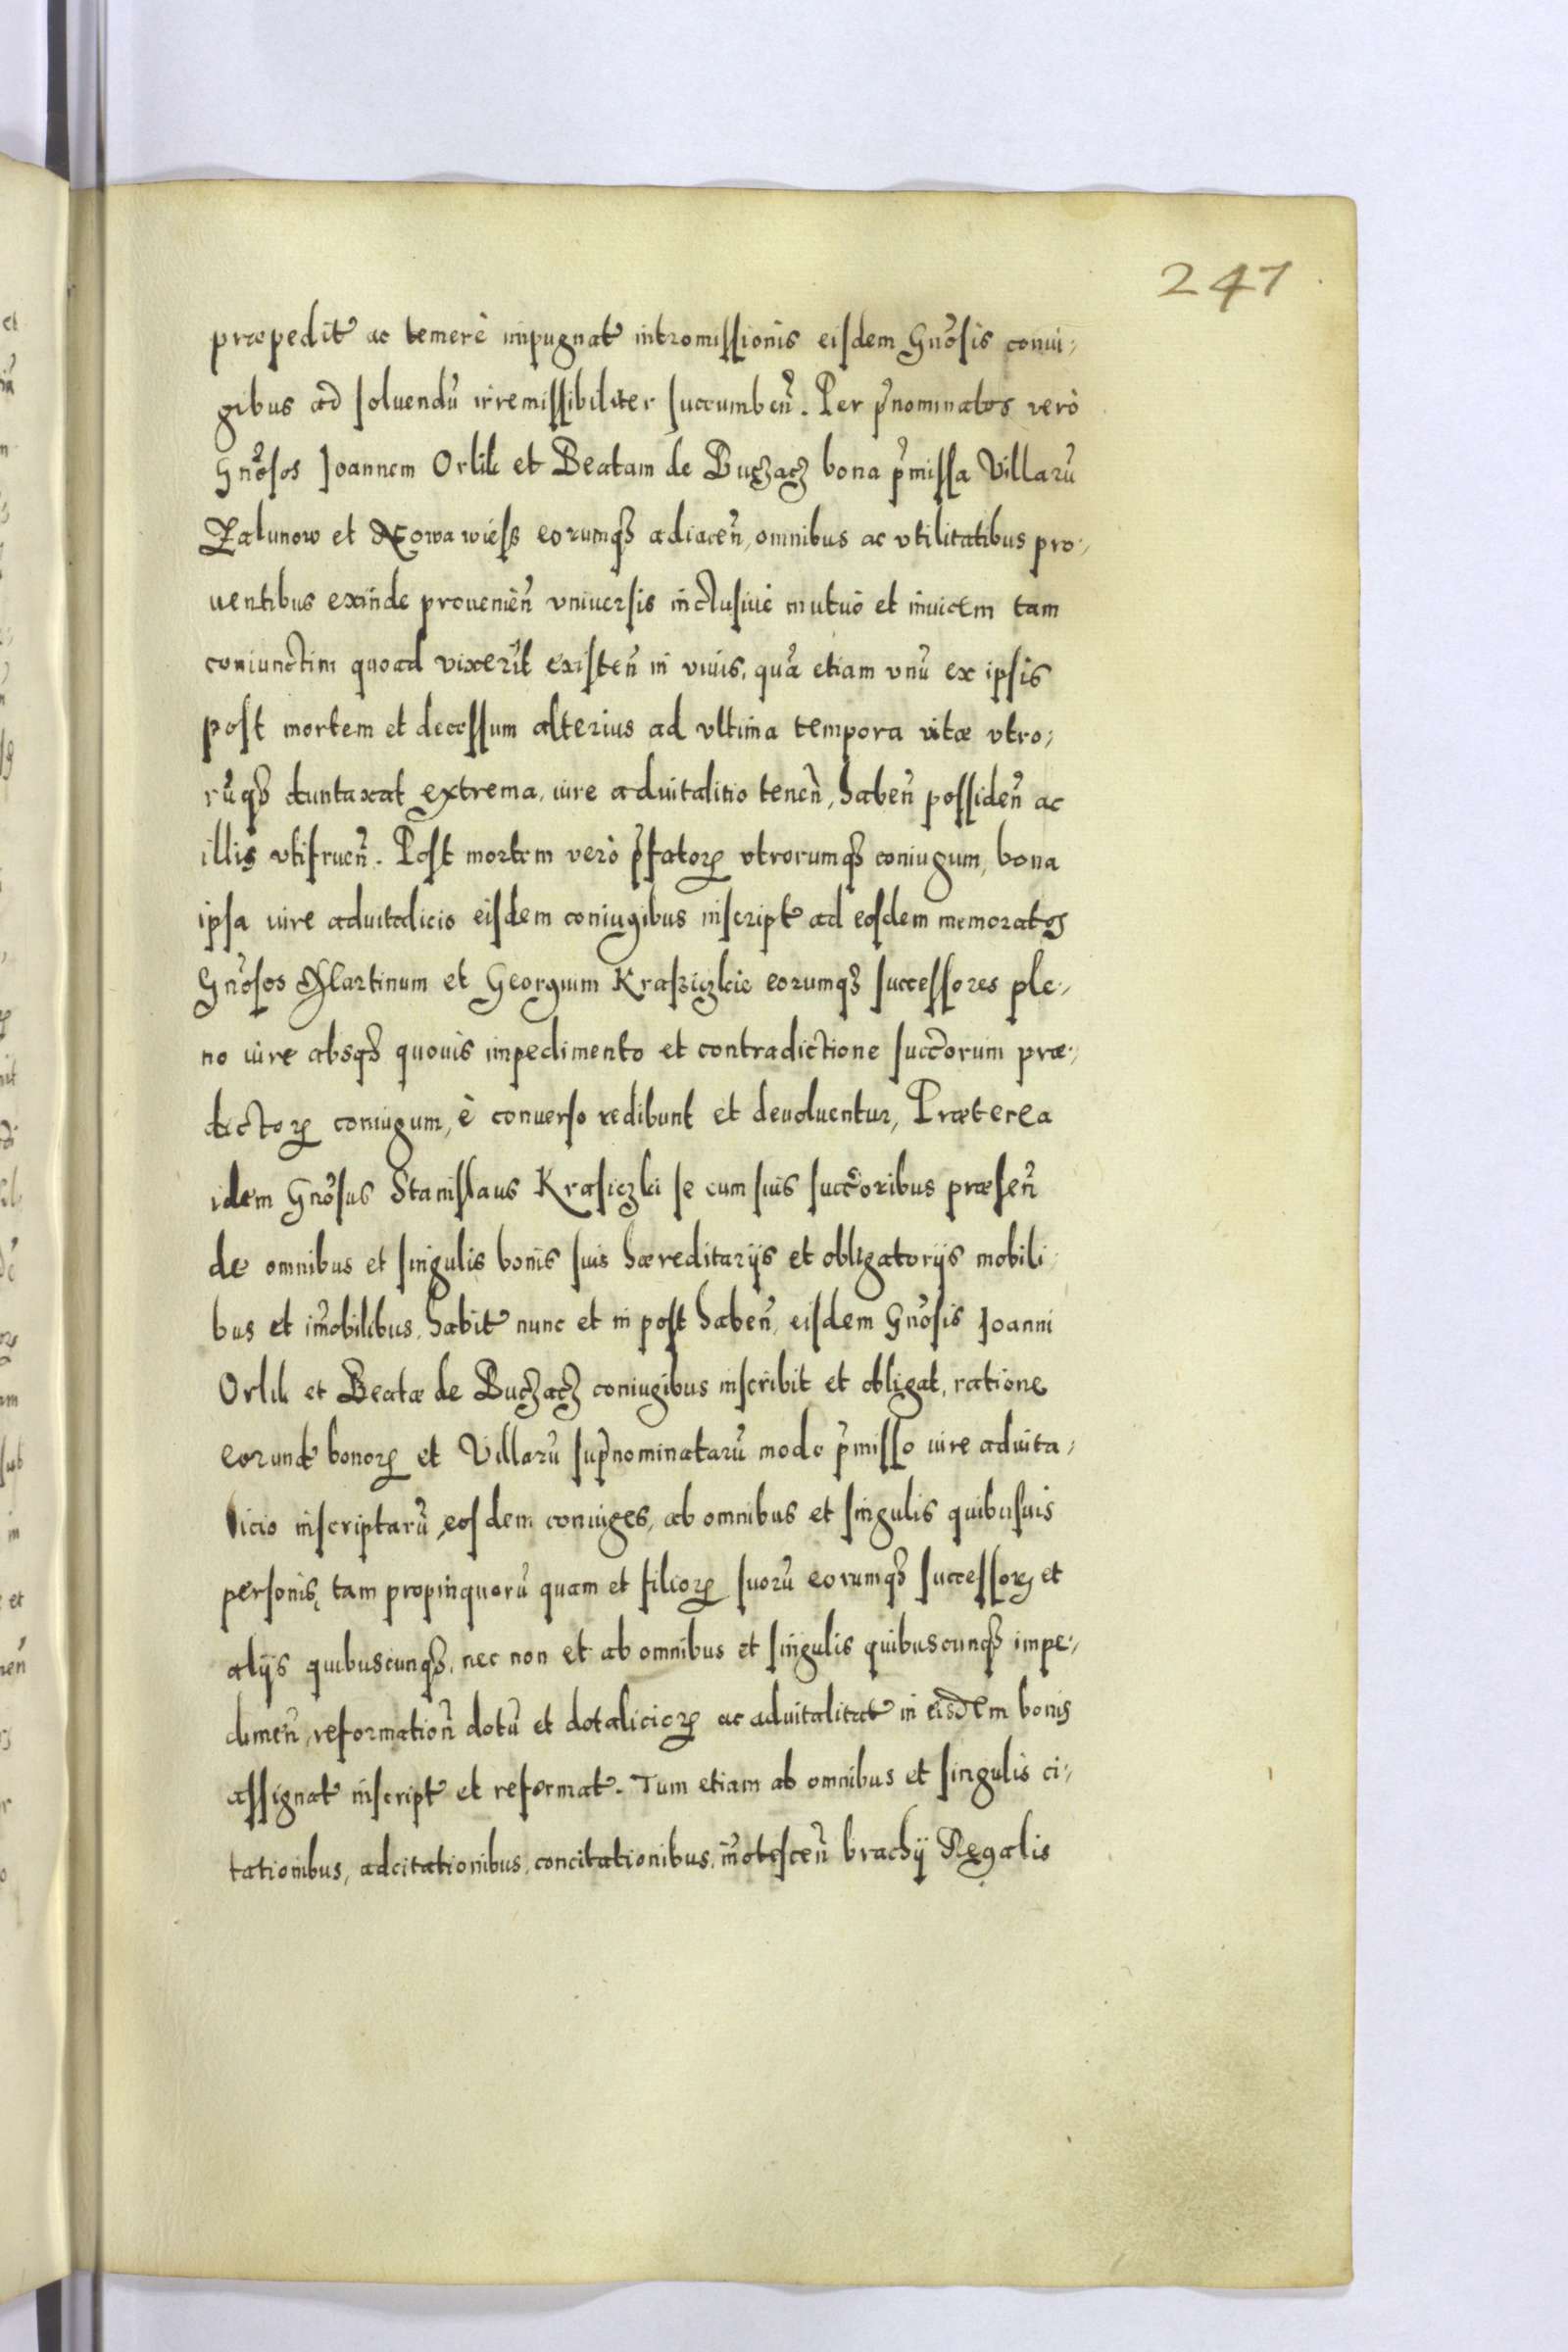 247
præpedit̃ ac temerè impugnat̃ intromissionis eisdem Gnõsis coniu⸗
gibus ad soluendũ irremissibiliter succumbeñ. Per p̃nominatos verò
Gnõsos Joannem Orlik et Beatam de Buczacz bona p̃missa Villarũ
Zalunow et Nowa wiesß eorumqꝫ adiaceñ, omnibus ac vtilitatibus pro⸗
uentibus exinde prouenieñ vniuersis inclusiuè mutuò et inuicem tam
coniunctim quoad vixerũt existeñ in viuis, quã etiam vnũ ex ipsis
post mortem et decessum alterius ad vltima tempora vitæ vtro⸗
rũqꝫ duntaxat extrema, iure aduitalitio teneñ, habeñ possideñ ac
illis vtifrueñ. Post mortem verò p̃fatoꝝ vtrorumqꝫ coniugum, bona
ipsa iure aduitalicio eisdem coniugibus inscript̃ ad eosdem memoratos
Gnõsos Martinum et Georgium Krasziczkie eorumqꝫ successores ple⸗
no iure absqꝫ quouis impedimento et contradictione succorum præ⸗
dictoꝝ coniugum, è conuerso redibunt et deuoluentur, Præterea
idem Gnõsus Stanislaus Krasiczki se cum suis succõribus præseñ
de omnibus et singulis bonis suis hæreditarijs et obligatorijs mobili
bus et im̃obilibus, habit̃ nunc et in post habeñ, eisdem Gnõsis Joanni
Orlik et Beatæ de Buczacz coniugibus inscribit et obligat, ratione
eorund̃ bonoꝝ et Villarũ sup̃nominatarũ modo p̃misso iure aduita⸗
licio inscriptarũ, eosdem coniuges, ab omnibus et singulis quibusuis
personis, tam propinquorũ quam et filioꝝ suorũ eorumqꝫ successoꝝ et
alijs quibuscunqꝫ, nec non et ab omnibus et singulis quibuscunqꝫ impe⸗
dimeñ, reformationñ dotũ et dotalicioꝝ ac aduitalitat̃ in eisdem bonis
assignat̃ inscript̃ et reformat̃. Tum etiam ab omnibus et singulis ci⸗
tationibus, adcitationibus, concitationibus, im̃otesceñ brachij Regalis